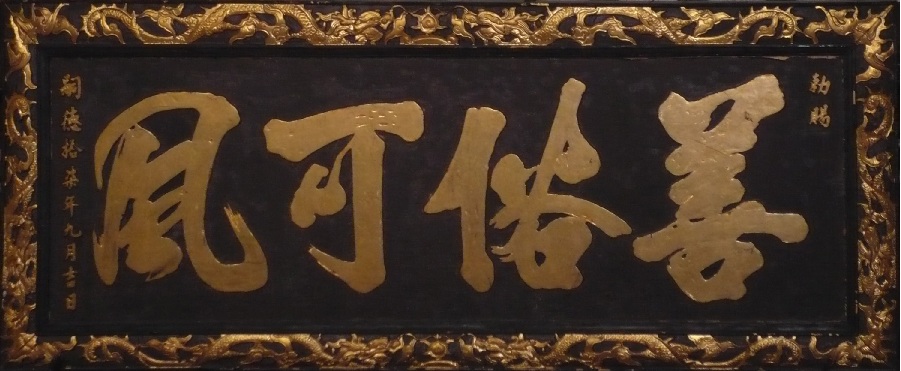 勅賜
善俗可風
嗣德拾柒年九月吉日